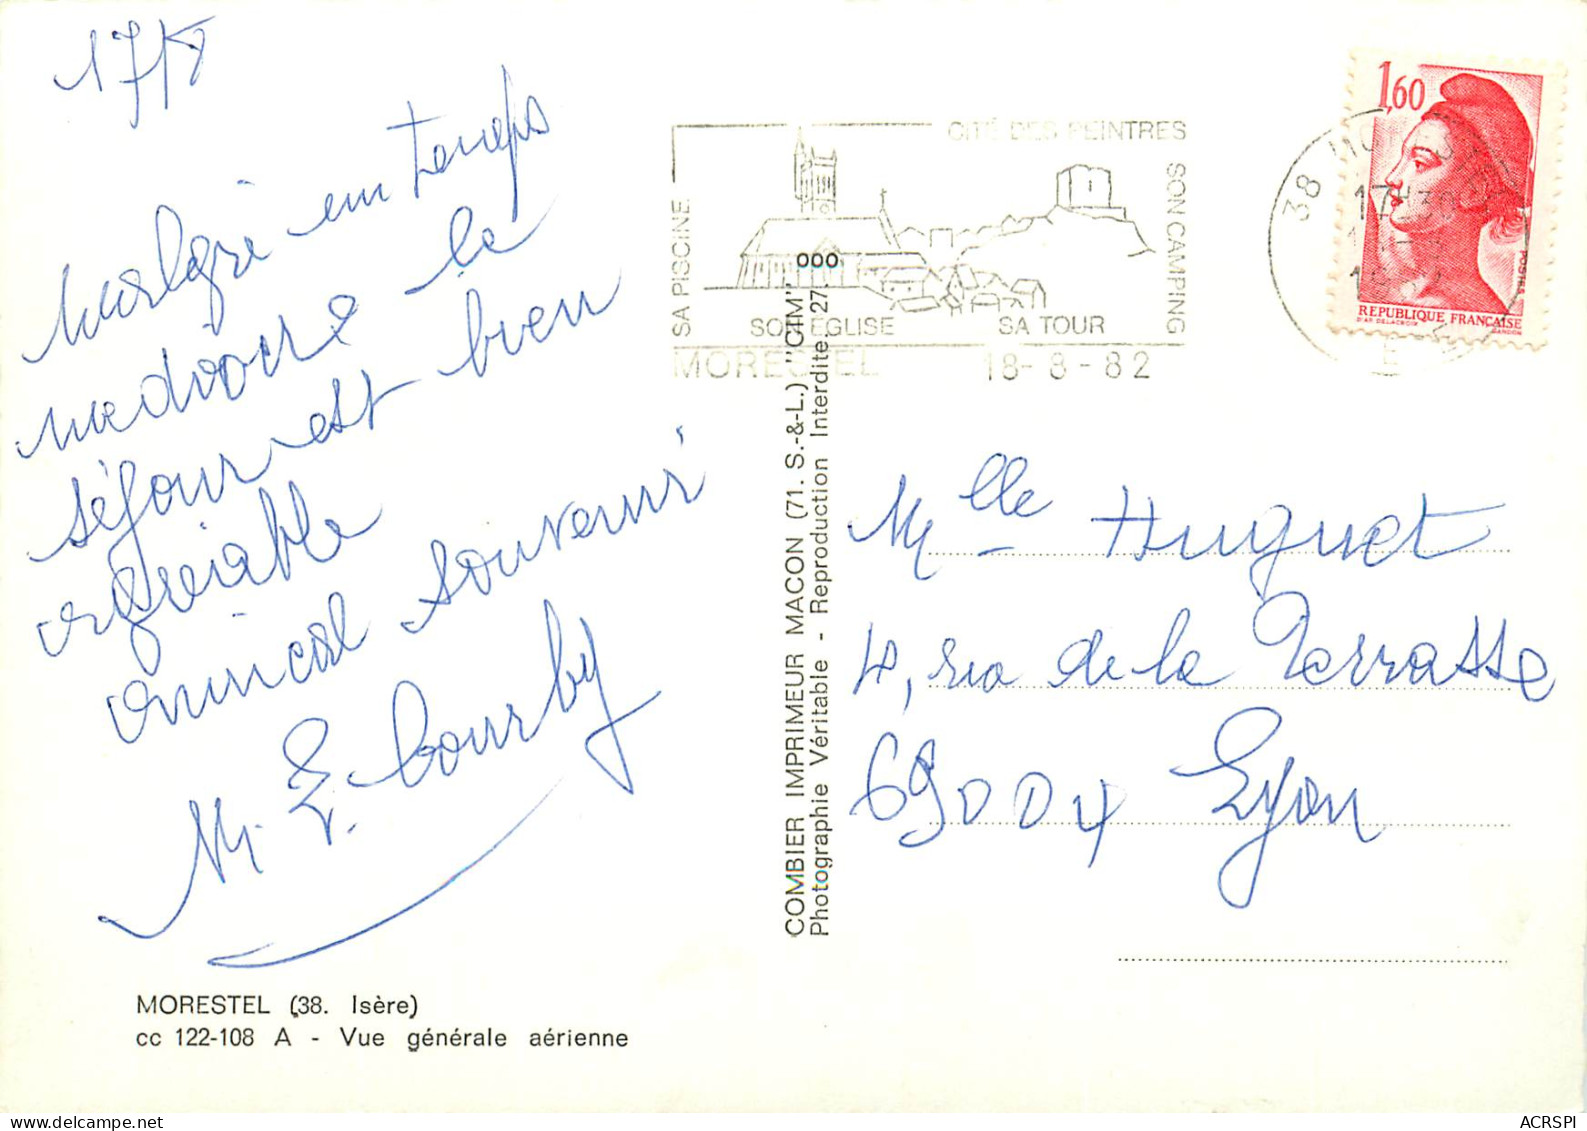 17/8
Malgré un temps
médiocre le
séjour est bien
agréable
amical souvenir
M. E. Courby
MORESTEL (38. Isère)
cc 122-108 A - Vue générale aérienne
COMBIER IMPRIMEUR MACON (71. S.-&-L.) "CIM"
Photographie Véritable - Reproduction Interdite 27.
CITÉ DES PEINTRES
SA PISCINE
SON CAMPING
SON EGLISE SA TOUR
MORESTEL 18-8-82
38
17H30
1,60
POSTES
REPUBLIQUE FRANÇAISE
D'AP. DELACROIX GANDON
Mlle Huguet
4, rue de la Terrasse
69004 Lyon
ACRSPI